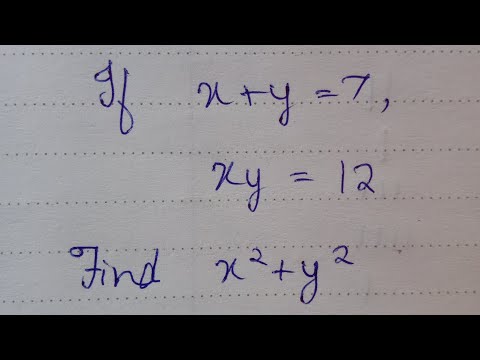 If x+y=7,
xy = 12
Find x²+y²